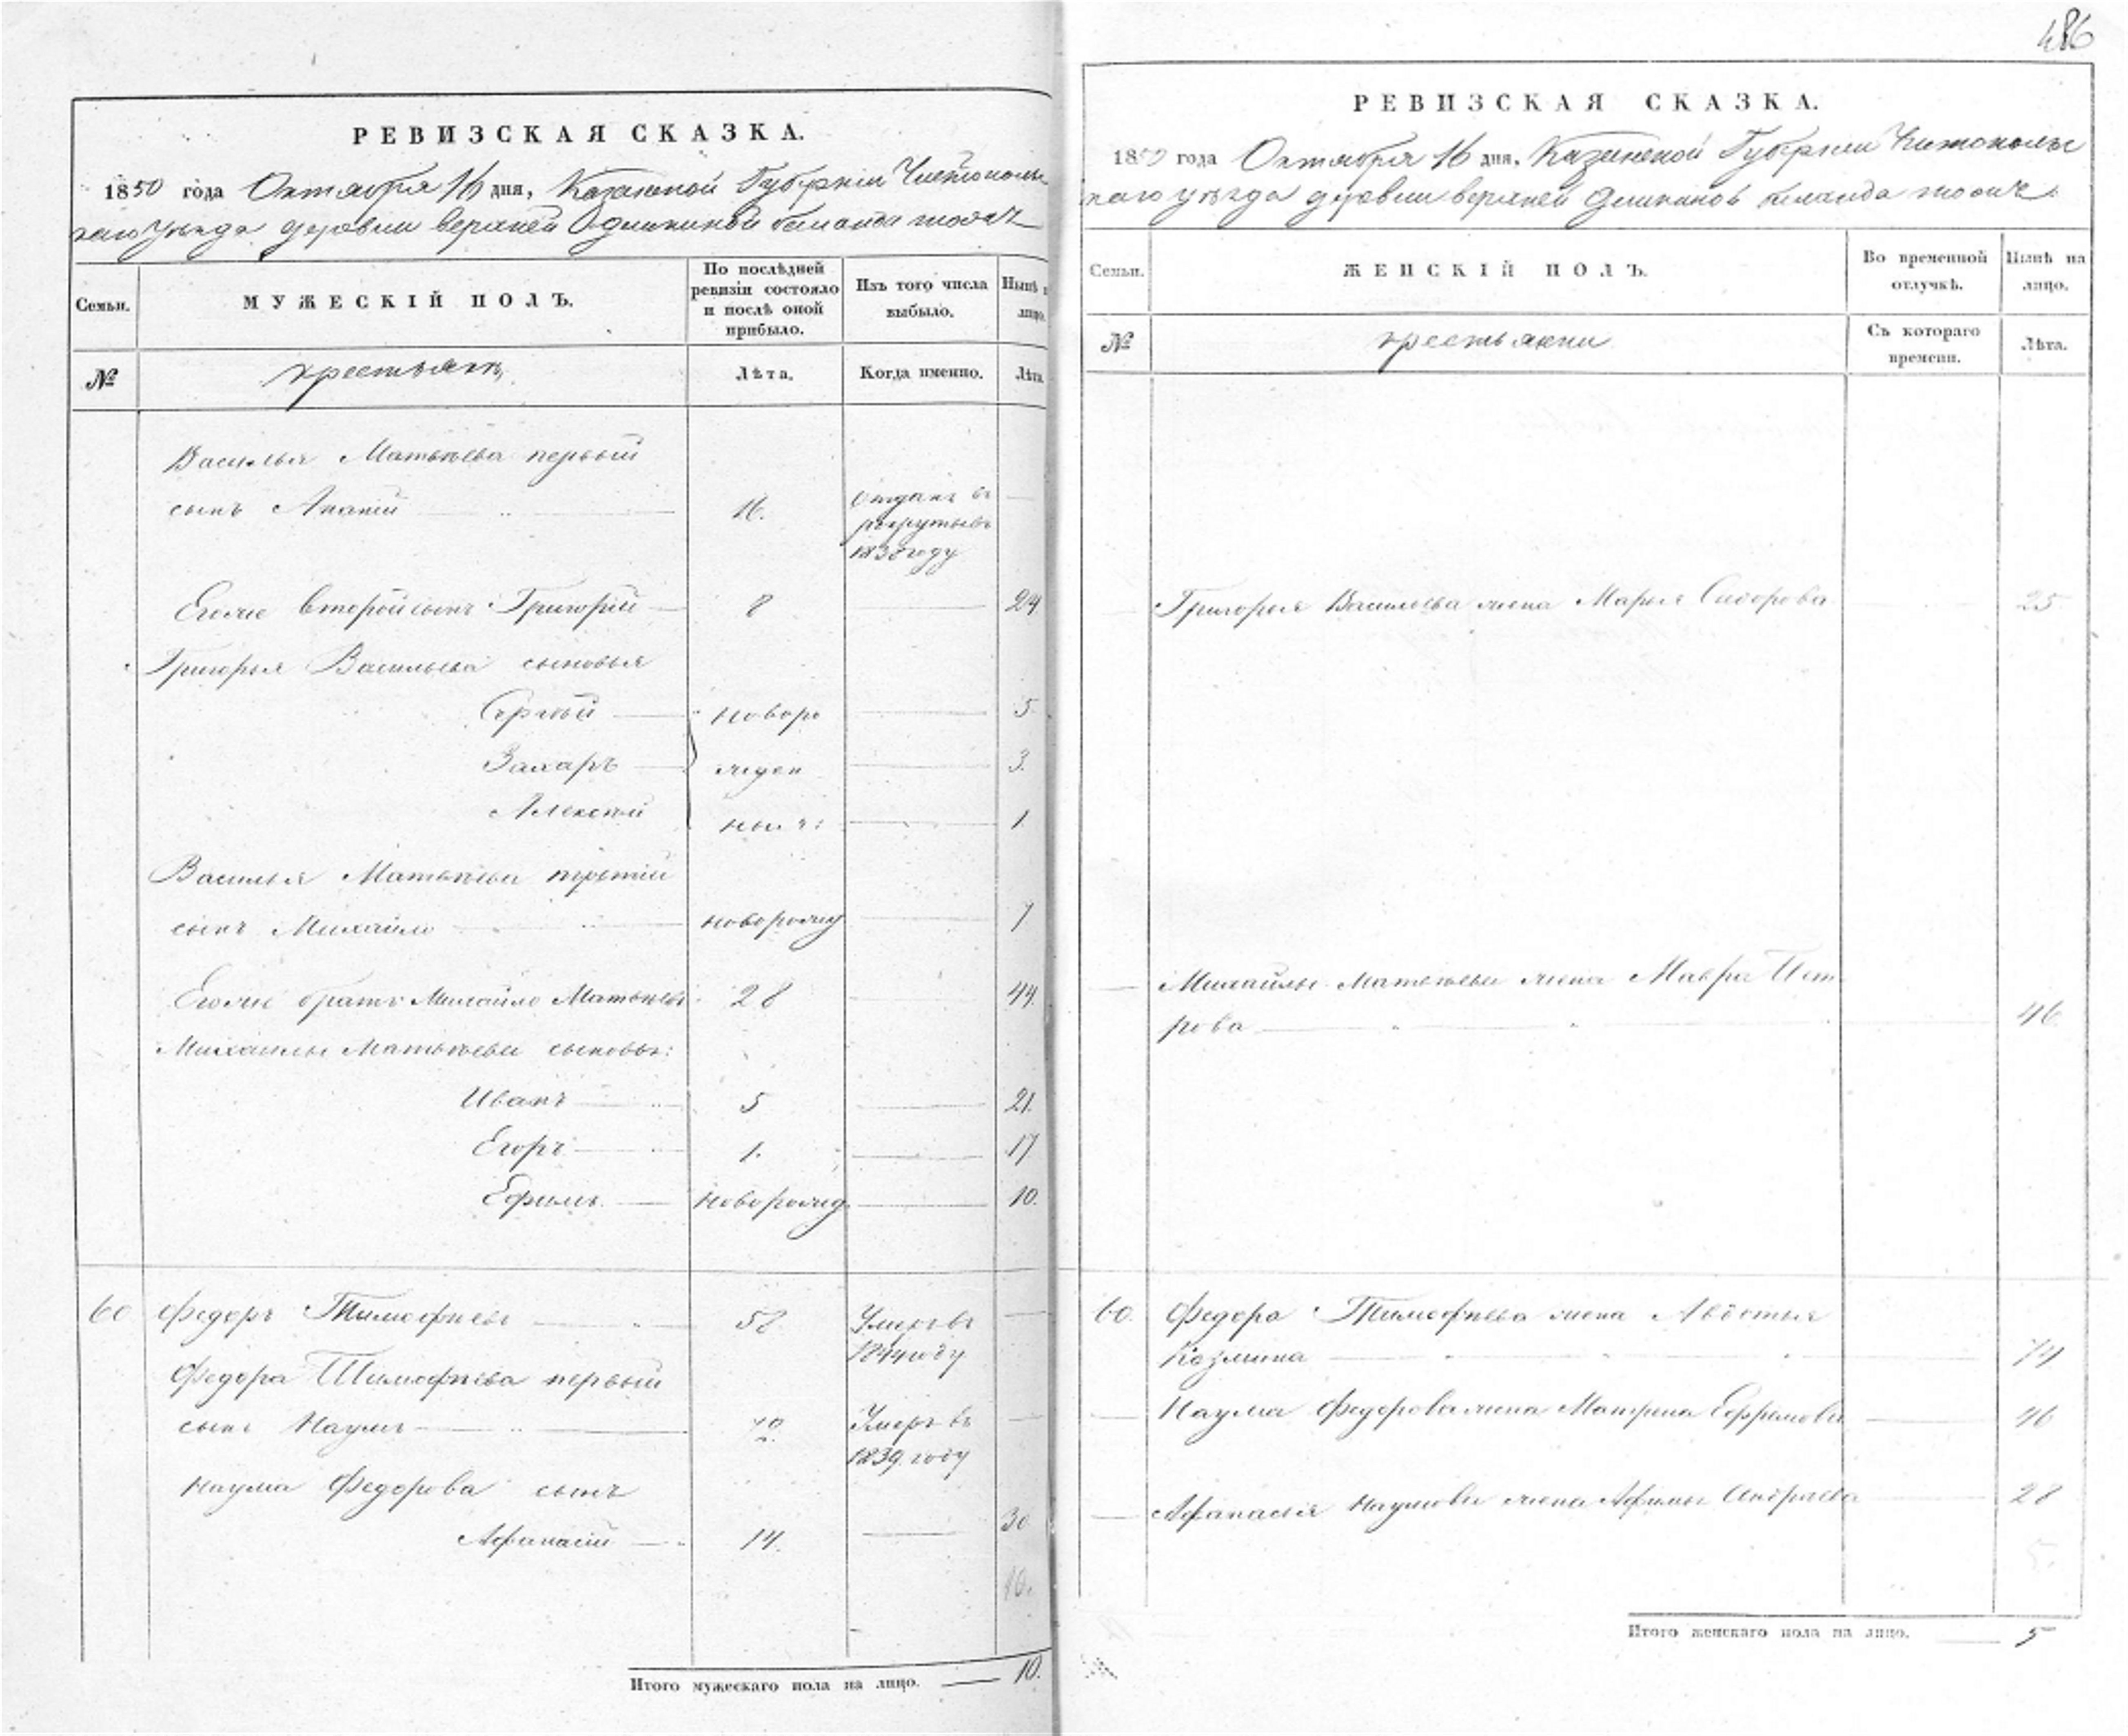 РЕВИЗСКАЯ СКАЗКА.
1850 года Октября 16 дня, Казанской Губерніи Чистополь
скаго уѣзда деревни верхней
Семьи.
МУЖЕСКІЙ ПОЛЪ.
По послѣдней ревизіи состояло и послѣ оной прибыло.
Изъ того числа выбыло.
Нынѣ на лицо.
№
крестьянъ
Лѣта.
Когда именно.
Лѣта
Василья Матвѣева первый
сынъ Ананій 16. отданъ въ
рекруты въ
году
Его же второй сынъ Григорій 8 24
Григорья Васильева сыновья
Сергѣй новоро 5
Захаръ жден 3.
Алексѣй ныя: 1
Василья Матвѣева третій
сынъ Михайло новорожд 7
Его же братъ Михайло Матвѣевъ 28 44.
Михайлы Матвѣева сыновья:
Иванъ 5 21.
Егоръ 1. 17
Ефимъ новорожд 10.
60 Федоръ Тимофѣевъ 58 Умеръ въ
1844 году
Федора Тимофѣева первый
сынъ Наумъ Умеръ въ
1839 году
Наума Федорова сынъ
Афанасій 14. 30
10.
Итого мужескаго пола на лицо. 10.
486
РЕВИЗСКАЯ СКАЗКА.
1850 года Октября 16 дня, Казанской Губерніи Чистополь
скаго уѣзда деревни верхней
Семьи.
ЖЕНСКІЙ ПОЛЪ.
Во временной отлучкѣ.
Нынѣ на лицо.
№
крестьянки
Съ котораго времени.
Лѣта.
Григорья Васильева жена Марья Сидорова 25
Михайлы Матвѣева жена Мавра Пет
рова 46
60. Федора Тимофѣева жена Авдотья
Козмина 74
Наума Федорова жена Матрена Ефремова 46
Афанасія Наумова жена Афимья Андреева 28
5.
Итого женскаго пола на лицо. 5